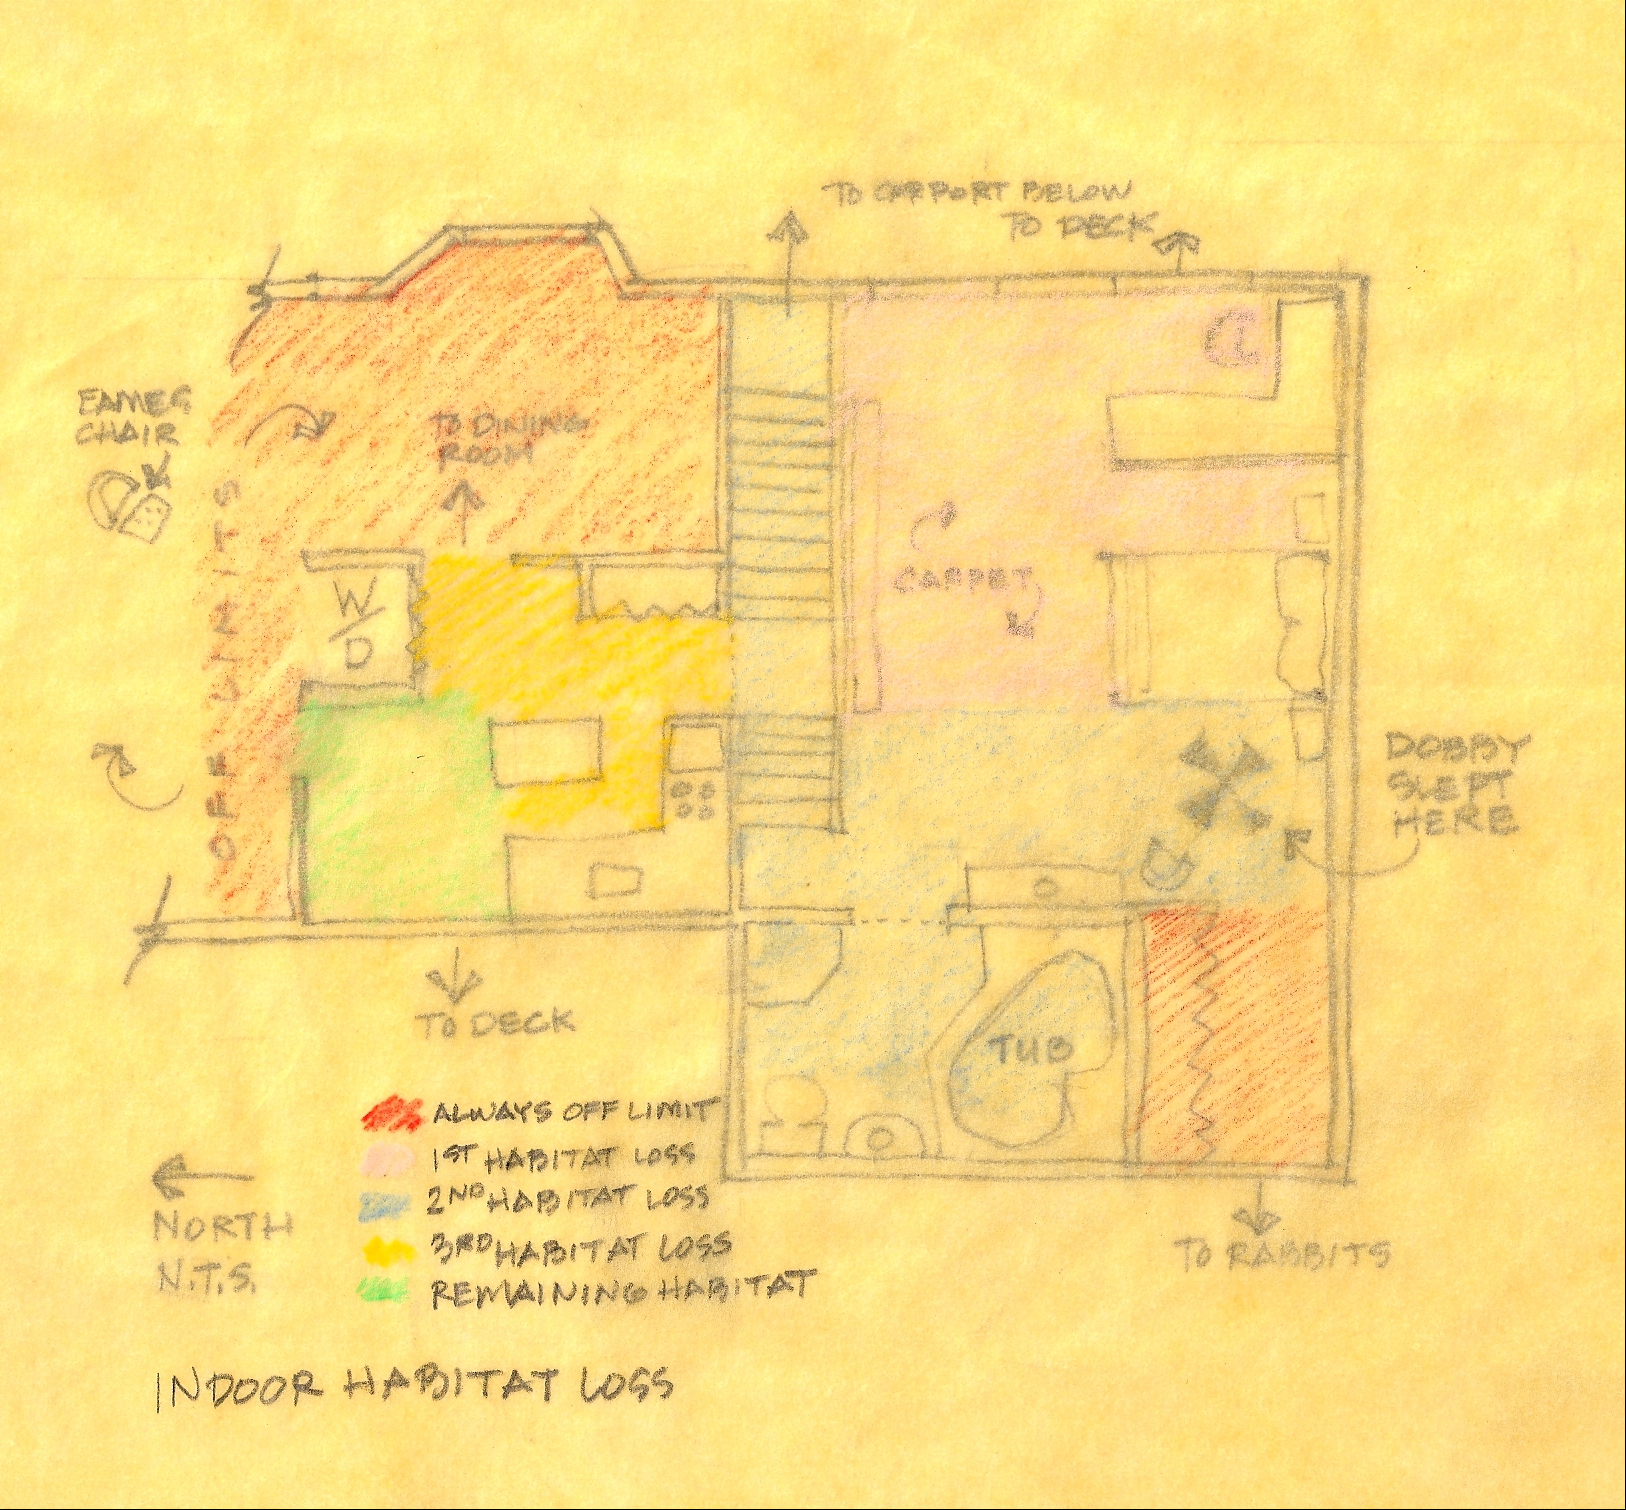 TO CARPORT BELOW
TO DECK
EAMES
CHAIR
TO DINING
ROOM
OFF LIMITS
W/D
CARPET
DOBBY
SLEPT
HERE
TUB
TO DECK
ALWAYS OFF LIMIT
1ST HABITAT LOSS
2ND HABITAT LOSS
3RD HABITAT LOSS
REMAINING HABITAT
NORTH
N.T.S.
TO RABBITS
INDOOR HABITAT LOSS